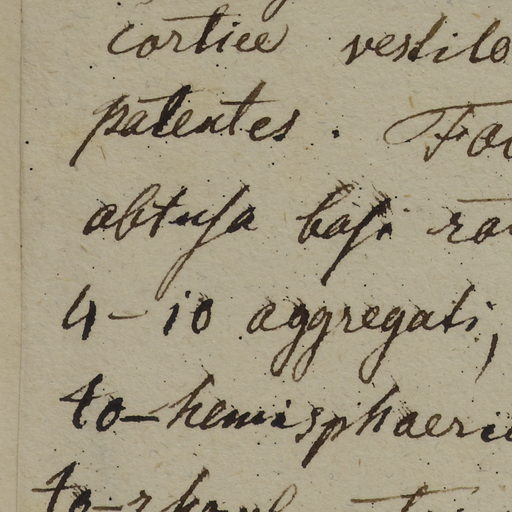 cortice vestito
patentes. Fo
obtusa basi
4-10 aggregati,
to-hemisphaeric